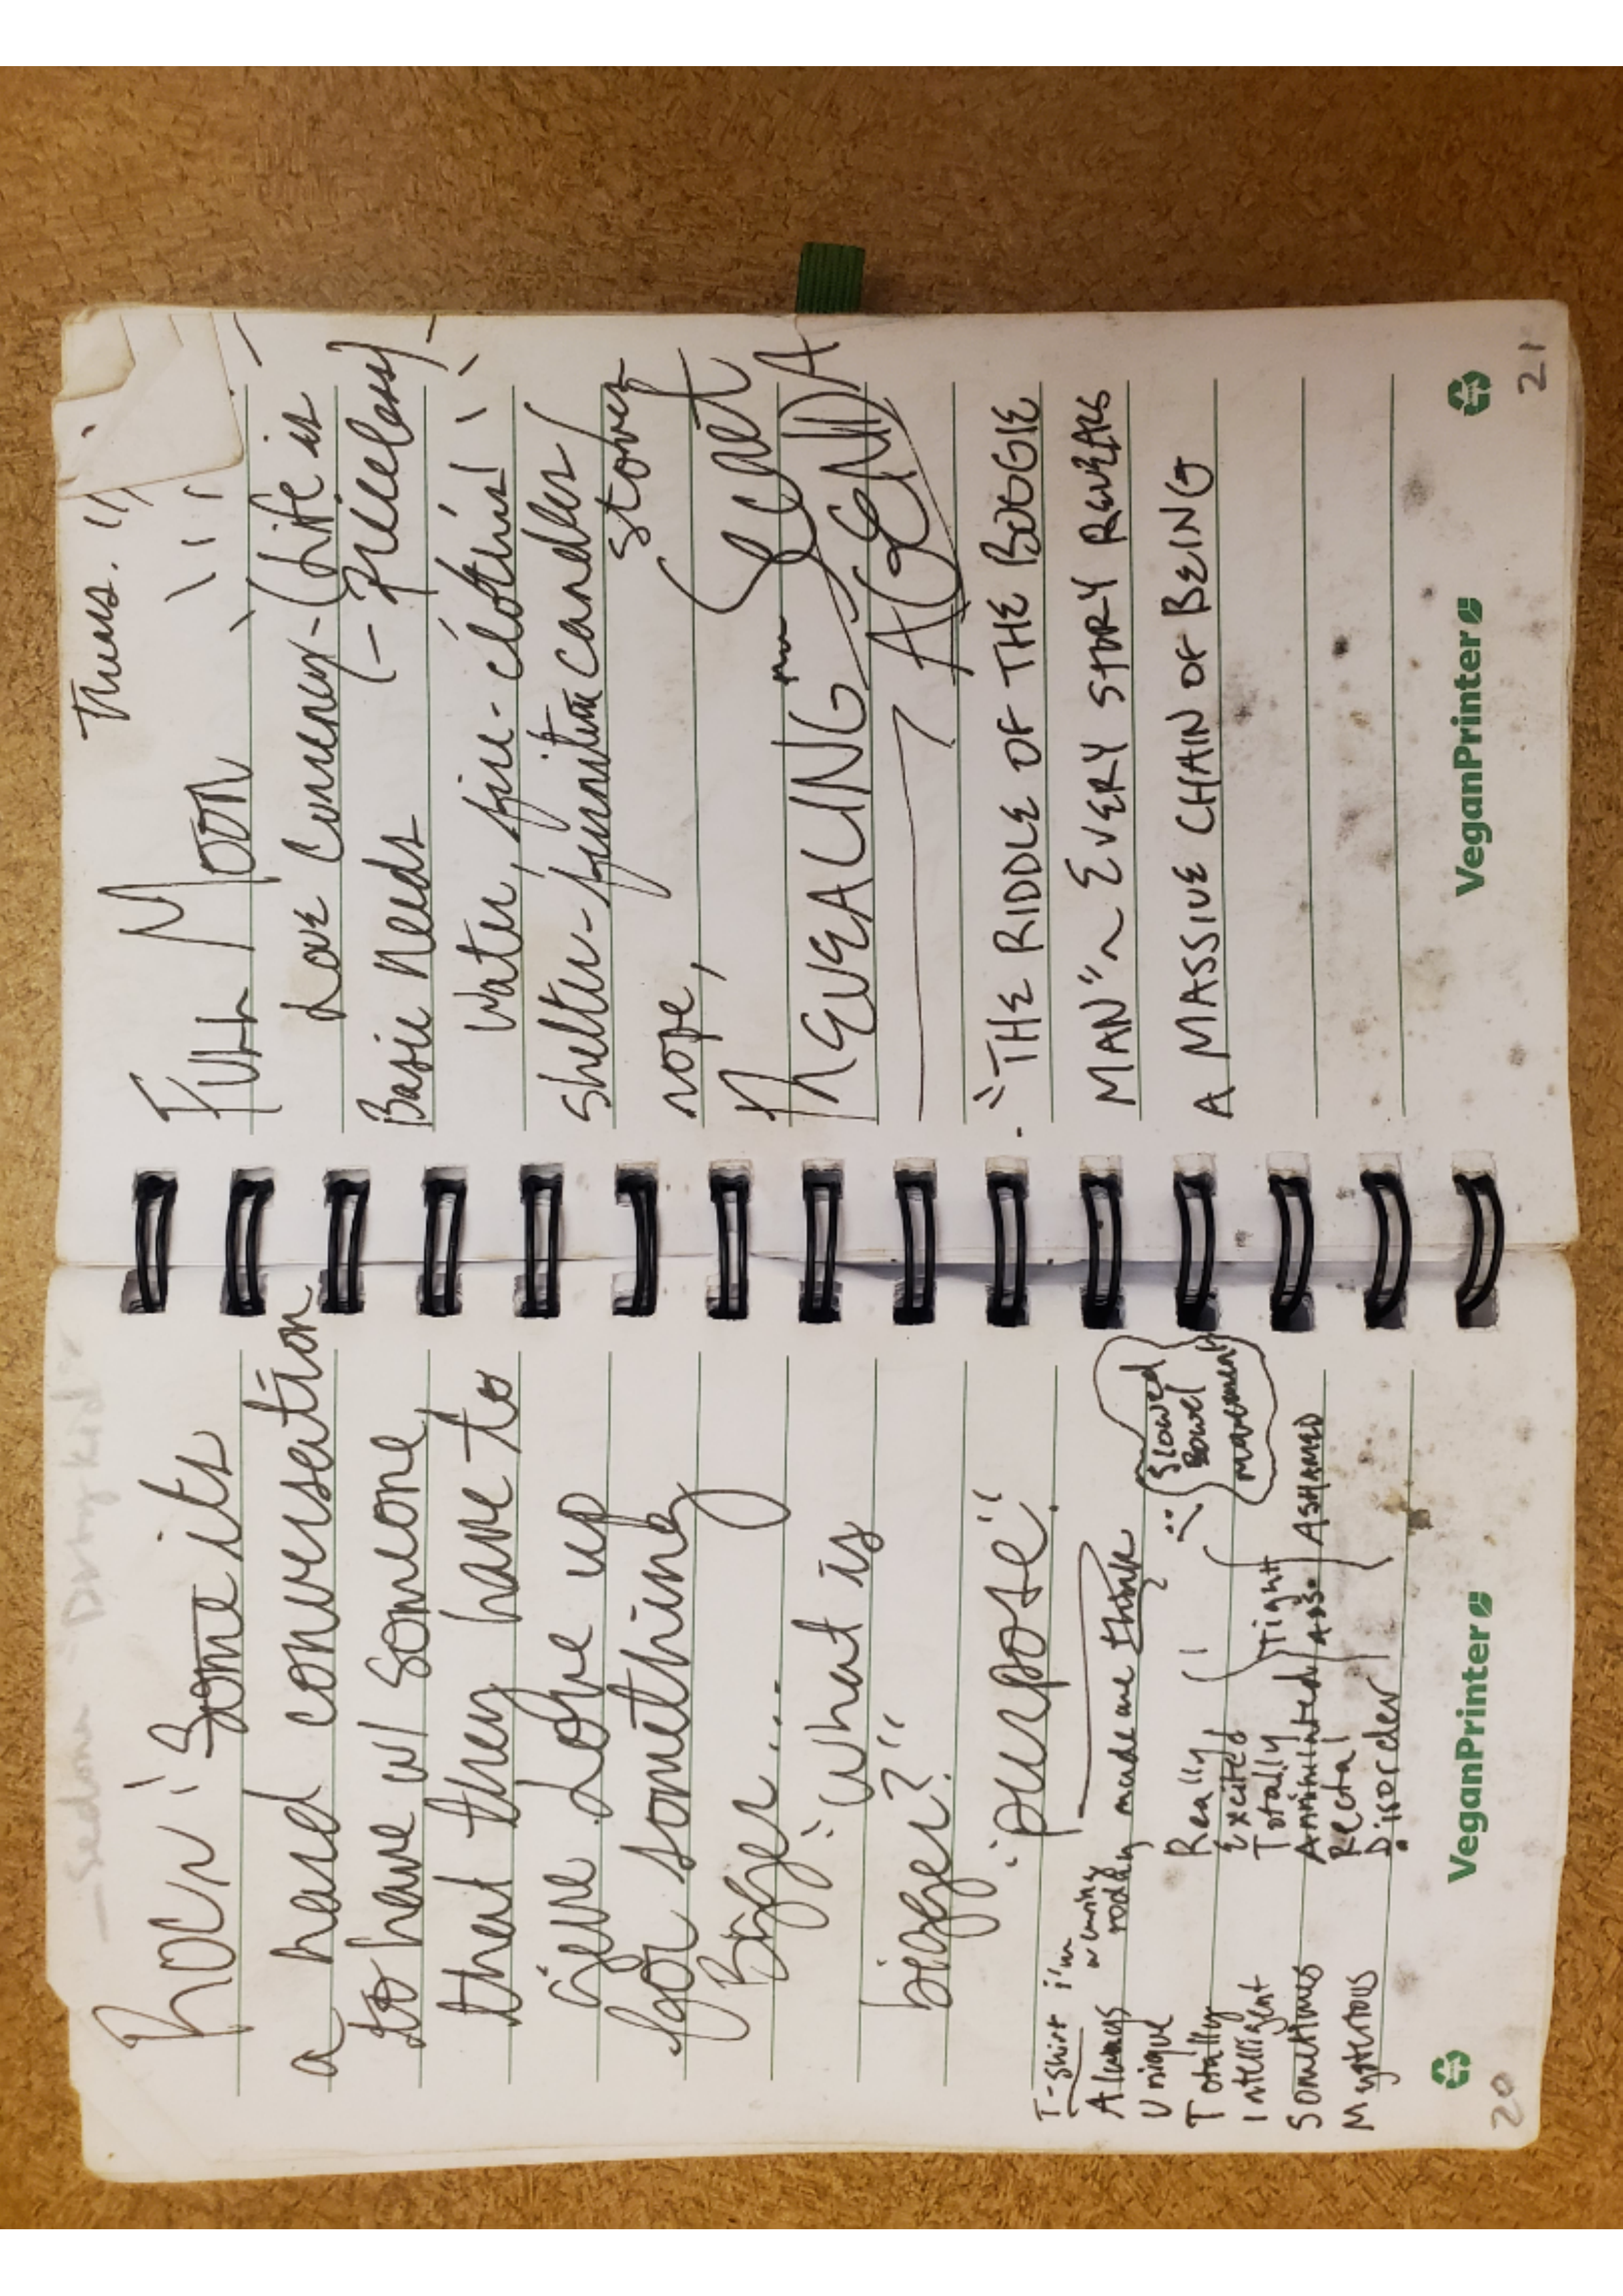 Rock "Some its
a hard conversation
to have w/ someone
that they have to
give Love up
for something
Bigger...
"what is
bigger?"
"purpose".
T-shirt i'm wearing today made me think
Always
Unique
Totally
Intelligent
Sometimes
Mysterious
Really
Excited
Totally
Rectal
Disorder
(Tight ass. ASHAMED
{Slowed
Bowel
movement
VeganPrinter
20
Thurs.
FULL MOON
LOVE Currency - (Life is
(- Priceless)
Basic Needs
Water, fire - clothing
shelter - furniture candles/
stoves
nope,
REVEALING Secret
AGENDA
"THE RIDDLE OF THE BOGGIE
MAN" ~ EVERY STORY REVEALS
A MASSIVE CHAIN OF BEING
VeganPrinter
21